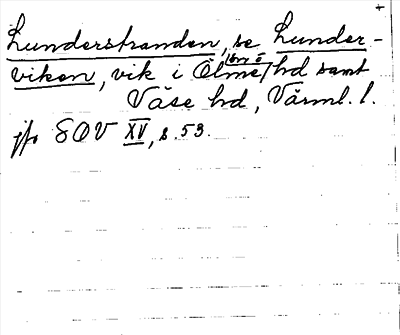 Lunderstranden, se Lunder-
viken, vik i Ölme hd samt
Väse hd, Värml. l.
jfr SOV XV, s. 53.